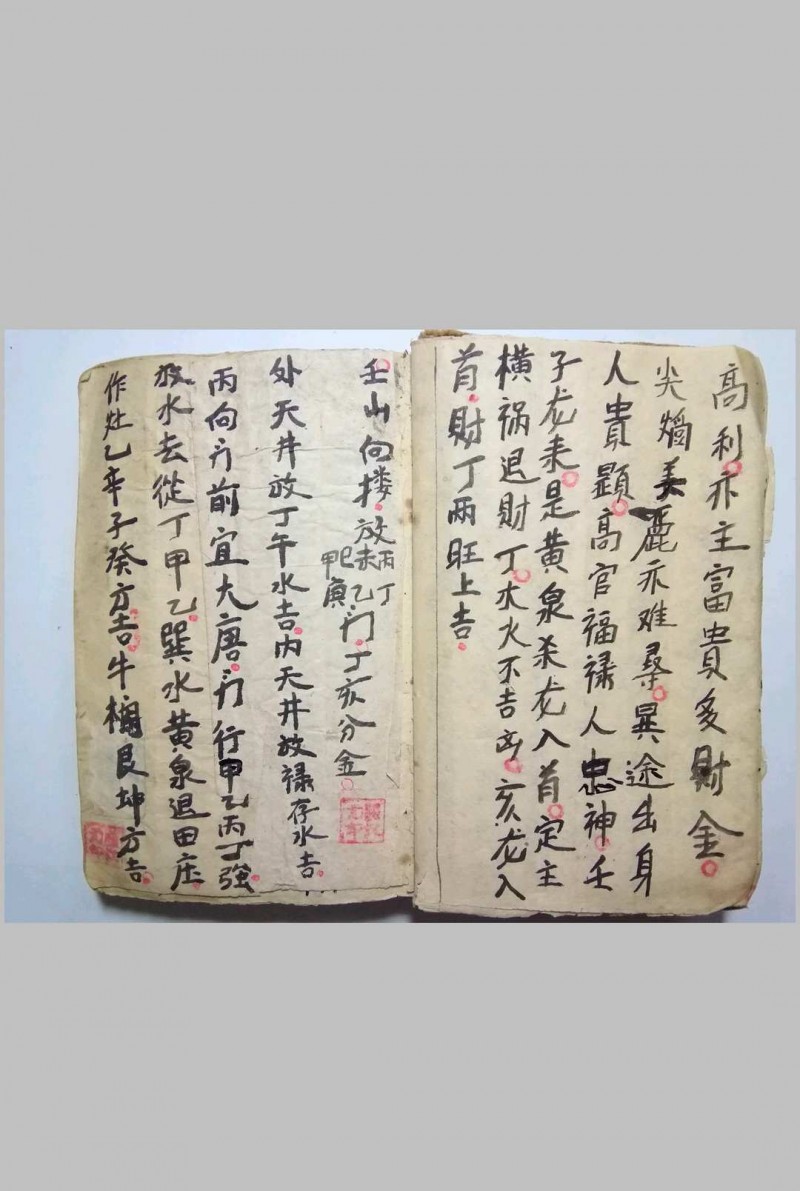 高利亦主富貴多財金
尖燭美麗亦难尋異途出身
人貴顯高官福禄人忠神壬
子龙来是黄泉杀龙入首定主
横祸退財丁水火不吉凶亥龙入
首財丁兩旺上吉
壬山向放丙丁未巳乙甲庚门丁亥分金
外天井放丁午水吉内天井放禄存水吉
丙向门前宜大唐门行甲乙丙丁強
放水去從丁甲乙巽水黄泉退田庄
作灶乙辛子癸方吉牛欄艮坤方吉